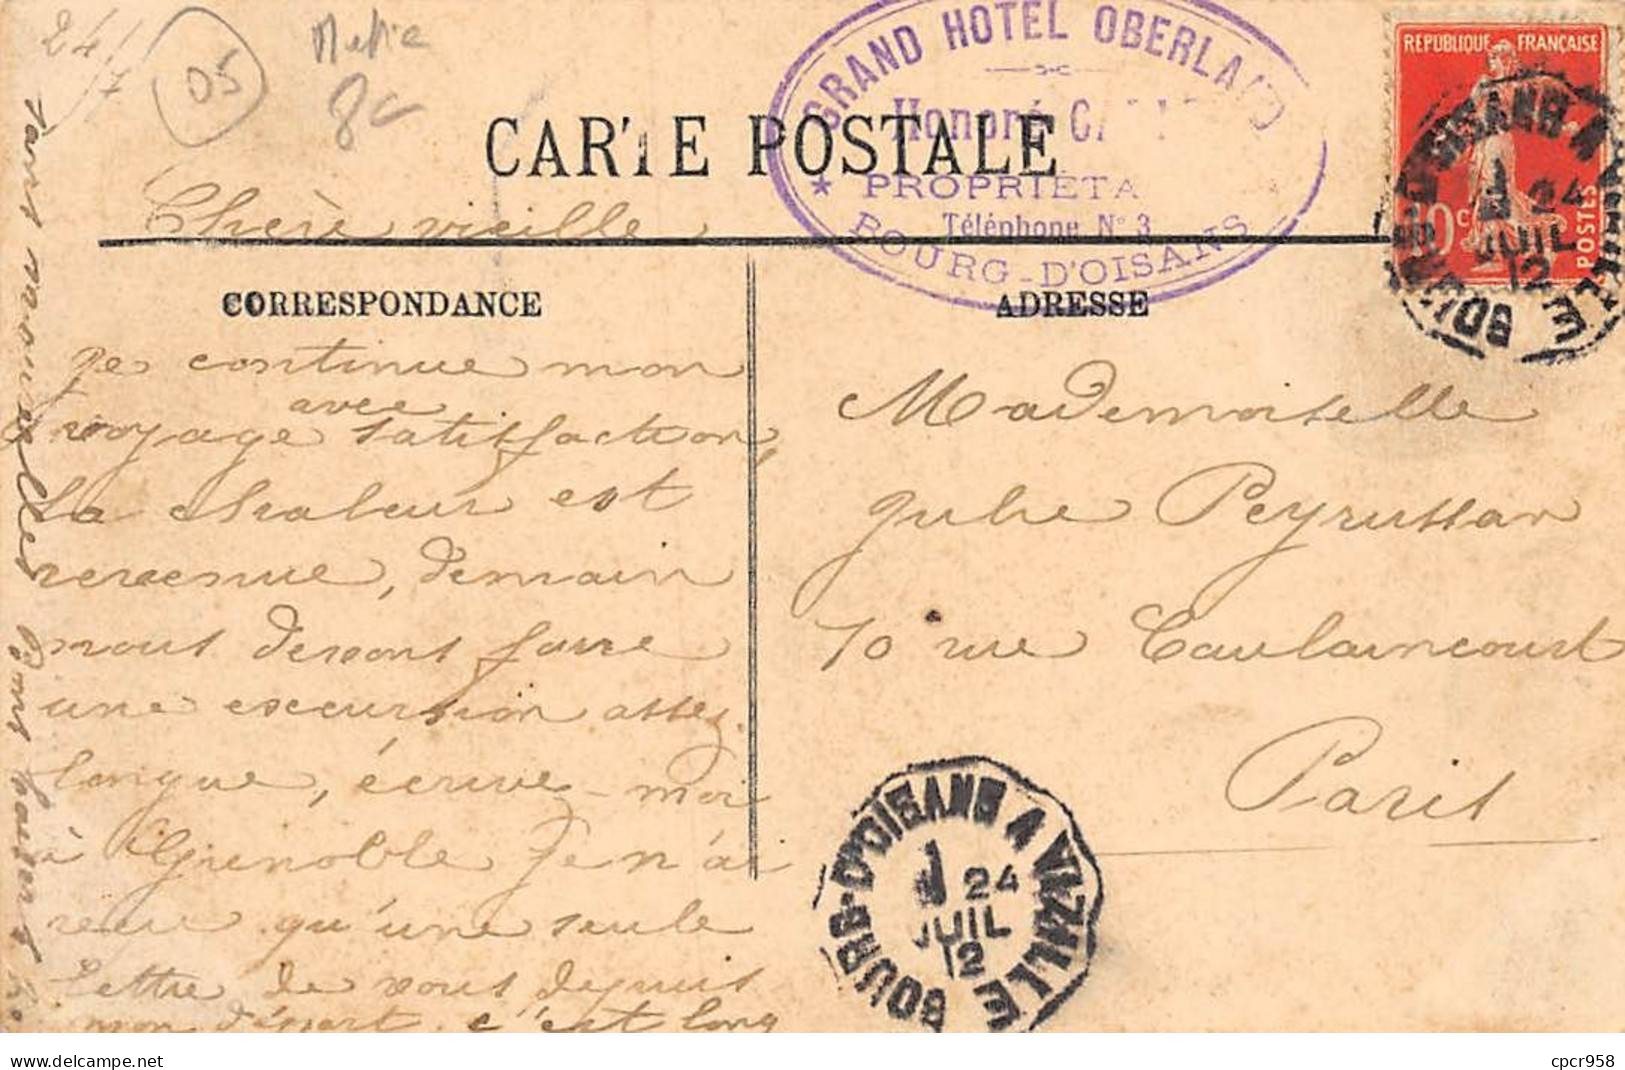 24/7
05
8c
GRAND HOTEL OBERLAND
Honoré
PROPRIÉTA
Téléphone N° 3
BOURG-D'OISANS
REPUBLIQUE FRANÇAISE
10c POSTES
BOURG-D'OISANS A VIZILLE
24
JUIL
12
CARTE POSTALE
Chère vieille
CORRESPONDANCE
ADRESSE
Je continue mon
voyage avec satisfaction,
la chaleur est
revenue, demain
nous devons faire
une excursion assez
longue, écrivez-moi
à Grenoble je n'ai
reçu qu'une seule
lettre de vous depuis
mon départ c'est long
sans nouvelles
Mademoiselle
Julie Peyrussan
70 rue Caulaincourt
Paris
BOURG-D'OISANS A VIZILLE
24
JUIL
12
cpcr958